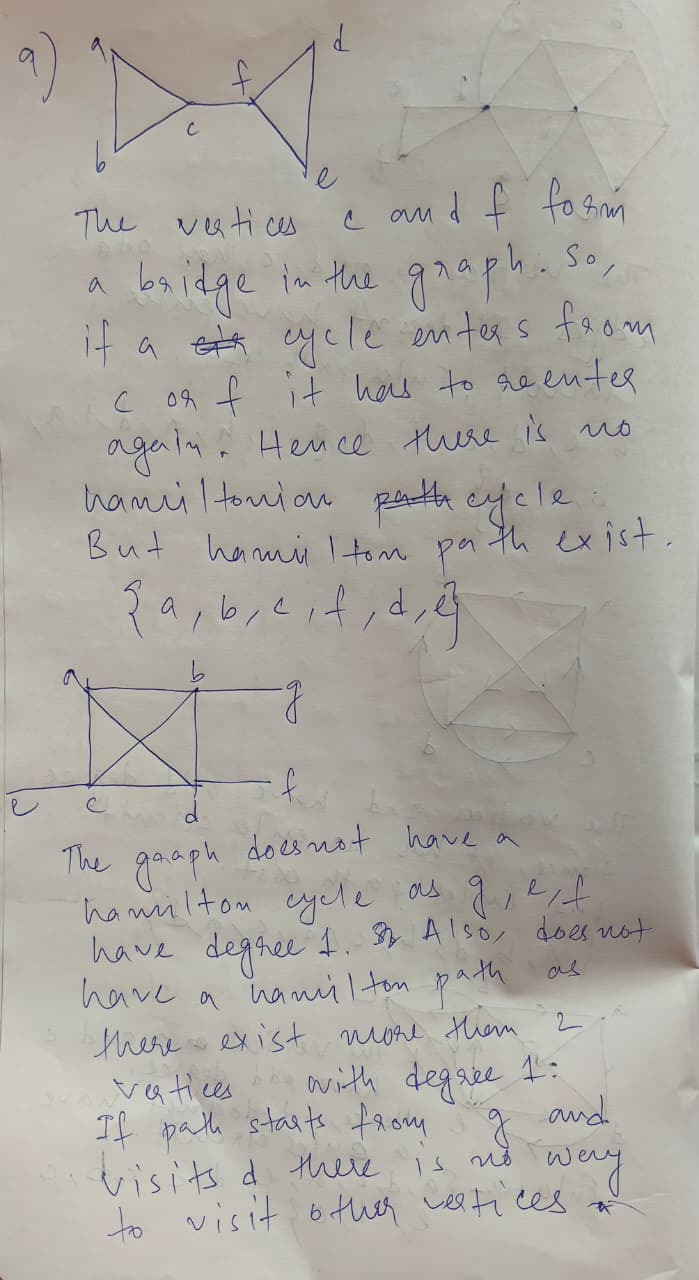 9)
a
d
f
c
b
e
The vertices c and f form
a bridge in the graph. So,
if a cycle enters from
c or f it has to reenter
again. Hence there is no
hamiltonian path cycle.
But hamilton path exist.
{a, b, c, f, d, e}
a
b
g
f
e
c
d
The graph does not have a
hamilton cycle as g, e, f
have degree 1. Also, does not
have a hamilton path as
there exist more than 2
vertices with degree 1:
If path starts from g and
visits d there is no way
to visit other vertices